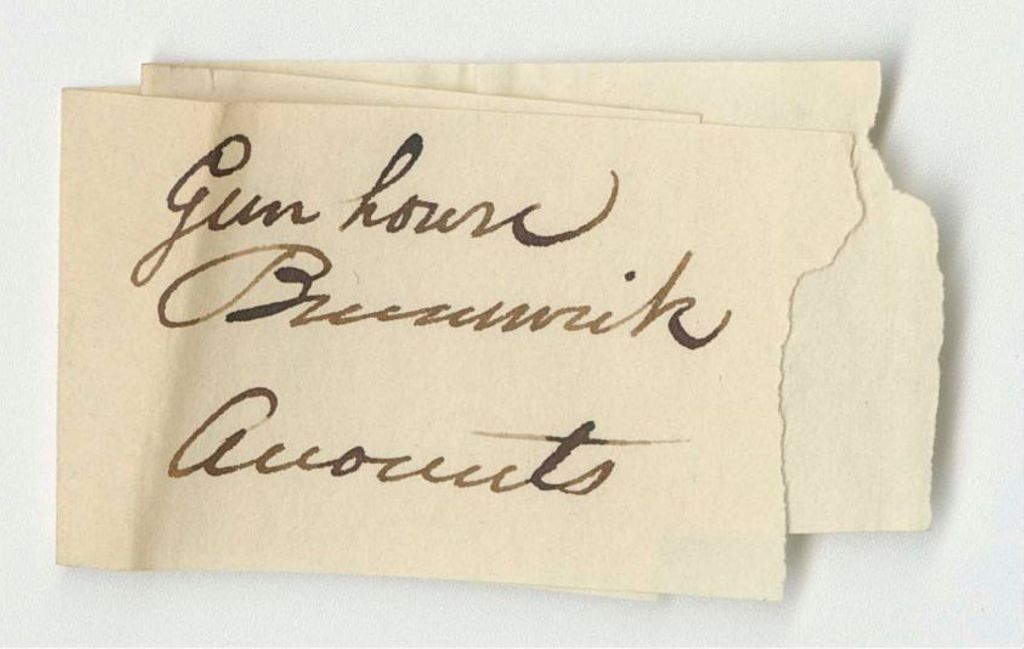 Gun house
Brunswick
Accounts